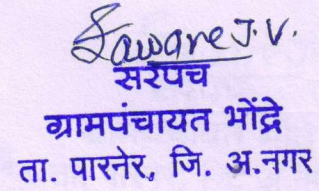 Zaware J.V.
सरपंच
ग्रामपंचायत भोंद्रे
ता. पारनेर, जि. अ.नगर